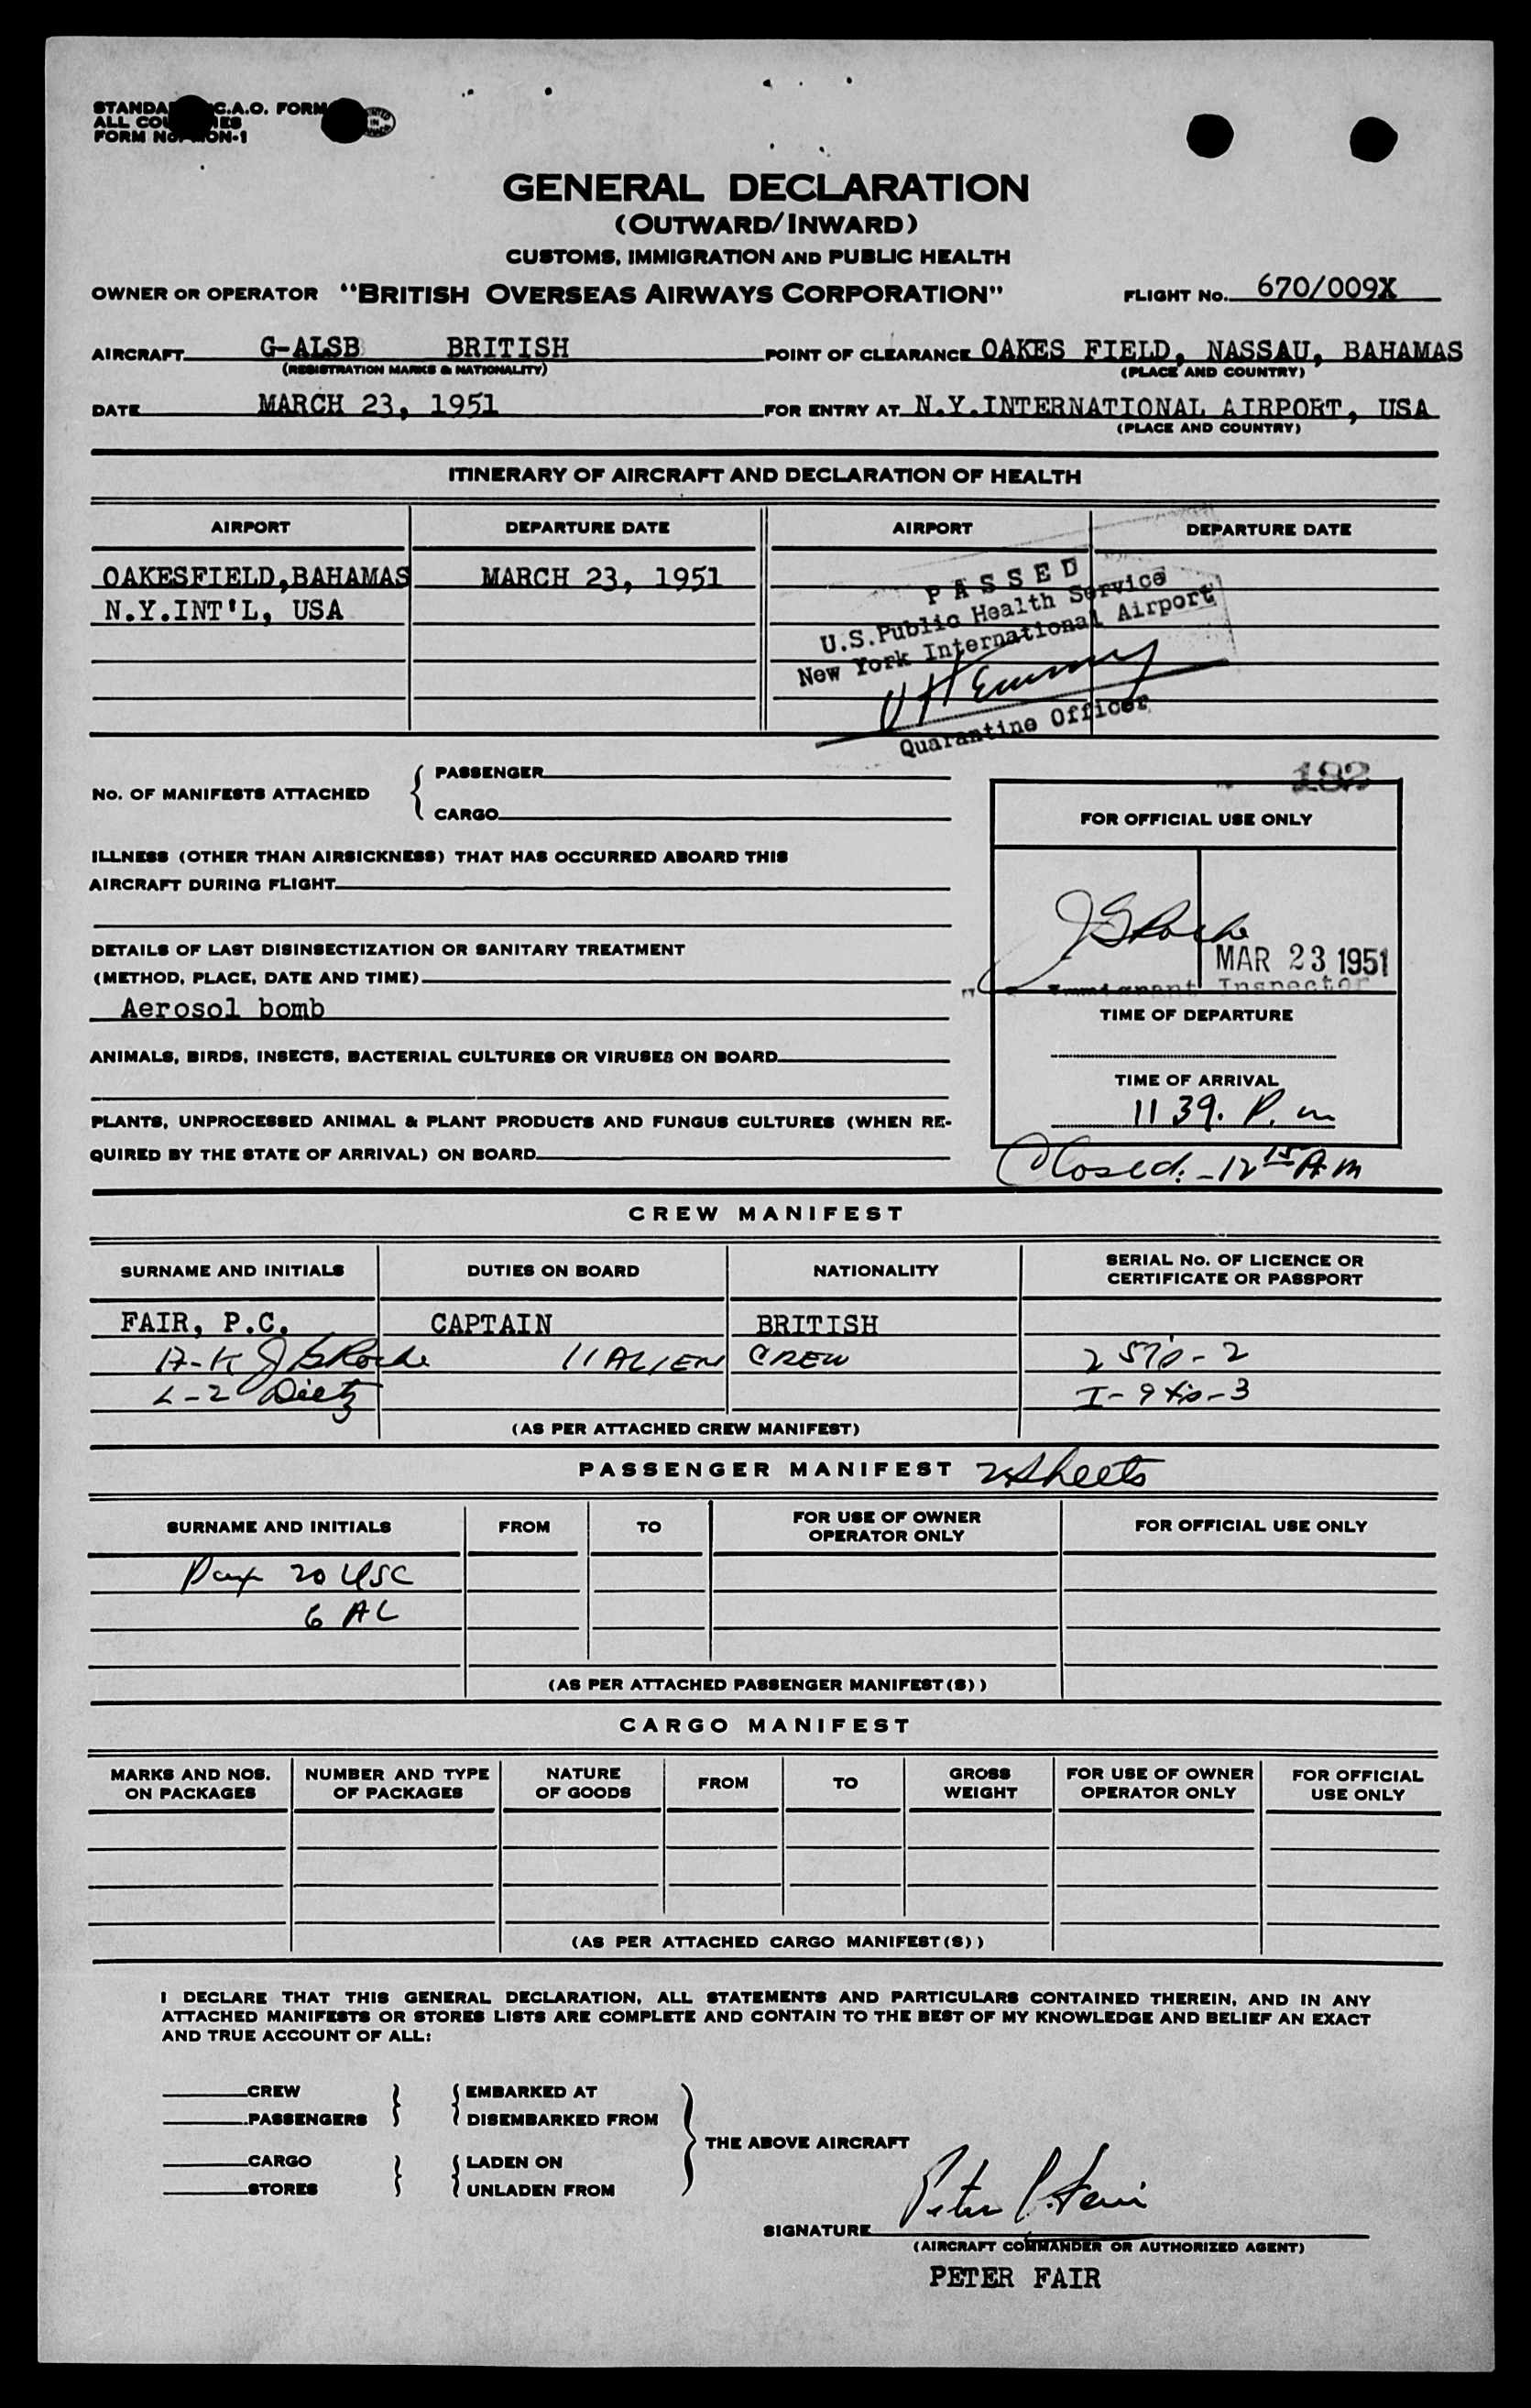 STANDA C.A.O. FORM
ALL COU IES
FORM No. ON-1
GENERAL DECLARATION
(OUTWARD/INWARD)
CUSTOMS, IMMIGRATION AND PUBLIC HEALTH
OWNER OR OPERATOR "BRITISH OVERSEAS AIRWAYS CORPORATION" FLIGHT No. 670/009X
AIRCRAFT G-ALSB BRITISH POINT OF CLEARANCE OAKES FIELD, NASSAU, BAHAMAS
(REGISTRATION MARKS & NATIONALITY) (PLACE AND COUNTRY)
DATE MARCH 23, 1951 FOR ENTRY AT N.Y.INTERNATIONAL AIRPORT, USA
(PLACE AND COUNTRY)
ITINERARY OF AIRCRAFT AND DECLARATION OF HEALTH
AIRPORT DEPARTURE DATE AIRPORT DEPARTURE DATE
OAKESFIELD,BAHAMAS MARCH 23, 1951
N.Y.INT'L, USA
PASSED
U.S.Public Health Service
New York International Airport
Quarantine Officer
No. OF MANIFESTS ATTACHED { PASSENGER
CARGO
182
FOR OFFICIAL USE ONLY
ILLNESS (OTHER THAN AIRSICKNESS) THAT HAS OCCURRED ABOARD THIS
AIRCRAFT DURING FLIGHT
DETAILS OF LAST DISINSECTIZATION OR SANITARY TREATMENT
(METHOD, PLACE, DATE AND TIME)
Aerosol bomb
JGRoche
MAR 23 1951
Immigrant Inspector
TIME OF DEPARTURE
ANIMALS, BIRDS, INSECTS, BACTERIAL CULTURES OR VIRUSES ON BOARD
TIME OF ARRIVAL
1139. P.m
PLANTS, UNPROCESSED ANIMAL & PLANT PRODUCTS AND FUNGUS CULTURES (WHEN RE-
QUIRED BY THE STATE OF ARRIVAL) ON BOARD
Closed. - 12 15 A m
CREW MANIFEST
SURNAME AND INITIALS DUTIES ON BOARD NATIONALITY SERIAL No. OF LICENCE OR
CERTIFICATE OR PASSPORT
FAIR, P.C. CAPTAIN BRITISH
JGRoche 11 ALIEN CREW
L-2 Dietz
(AS PER ATTACHED CREW MANIFEST)
PASSENGER MANIFEST 2 Sheets
SURNAME AND INITIALS FROM TO FOR USE OF OWNER
OPERATOR ONLY FOR OFFICIAL USE ONLY
20 USC
6 AL
(AS PER ATTACHED PASSENGER MANIFEST(S))
CARGO MANIFEST
MARKS AND NOS.
ON PACKAGES
NUMBER AND TYPE
OF PACKAGES
NATURE
OF GOODS
FROM
TO
GROSS
WEIGHT
FOR USE OF OWNER
OPERATOR ONLY
FOR OFFICIAL
USE ONLY
(AS PER ATTACHED CARGO MANIFEST(S))
I DECLARE THAT THIS GENERAL DECLARATION, ALL STATEMENTS AND PARTICULARS CONTAINED THEREIN, AND IN ANY
ATTACHED MANIFESTS OR STORES LISTS ARE COMPLETE AND CONTAIN TO THE BEST OF MY KNOWLEDGE AND BELIEF AN EXACT
AND TRUE ACCOUNT OF ALL:
CREW } { EMBARKED AT
PASSENGERS } { DISEMBARKED FROM
THE ABOVE AIRCRAFT
CARGO } { LADEN ON
STORES } { UNLADEN FROM
SIGNATURE Peter C. Fair
(AIRCRAFT COMMANDER OR AUTHORIZED AGENT)
PETER FAIR